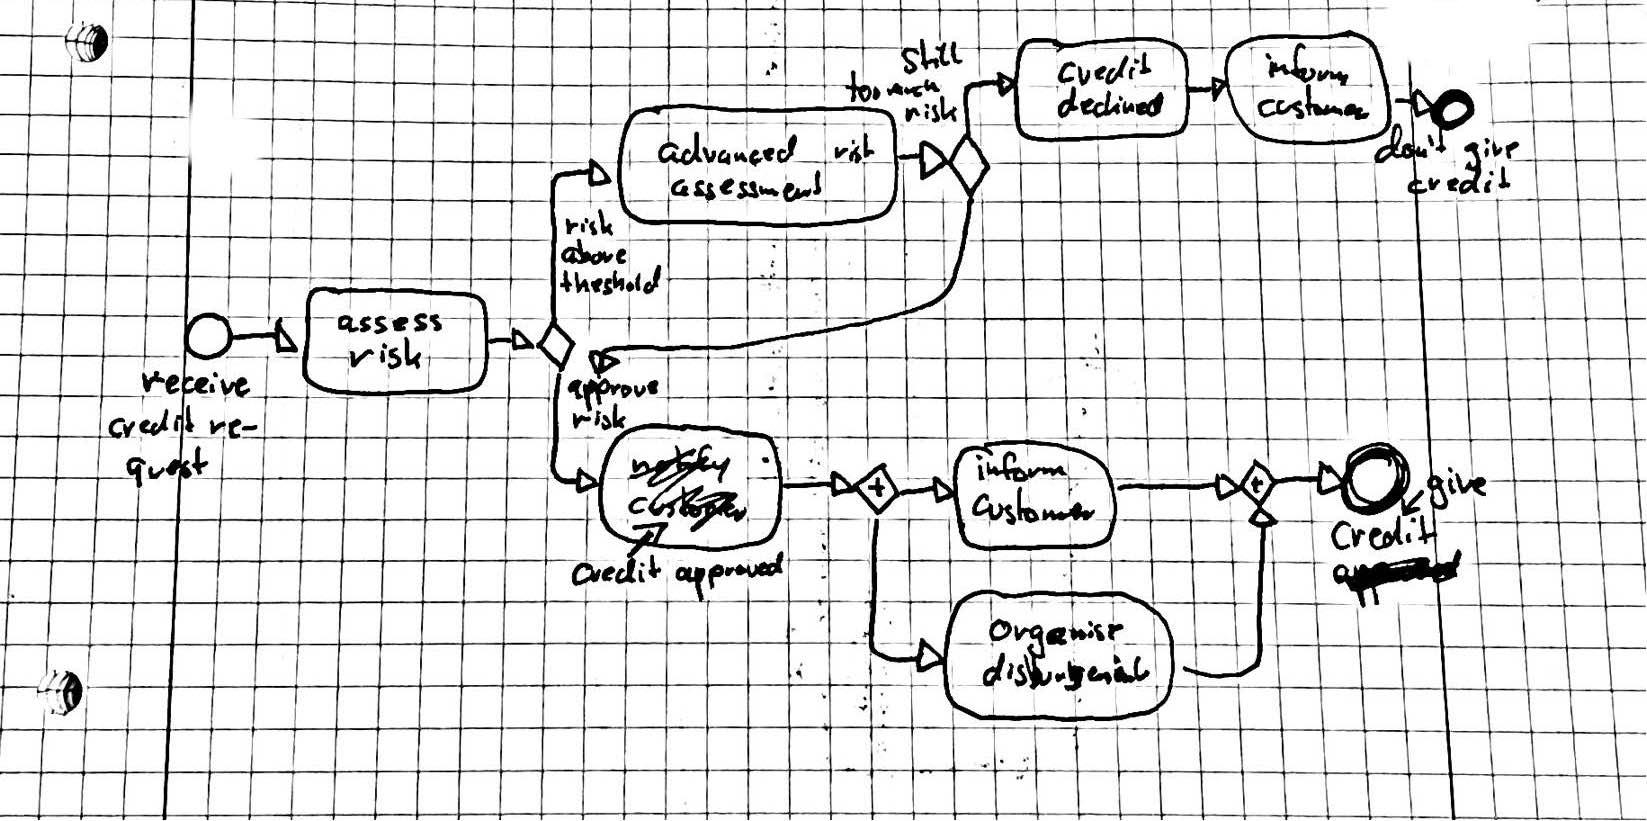 receive
credit re-
quest
assess
risk
risk
above
theshold
advanced risk
assessment
Still
too much
risk
credit
declined
inform
customer
don't give
credit
approve
risk
notify
customer
Credit approved
inform
Customer
Organise
+
+
give
Credit